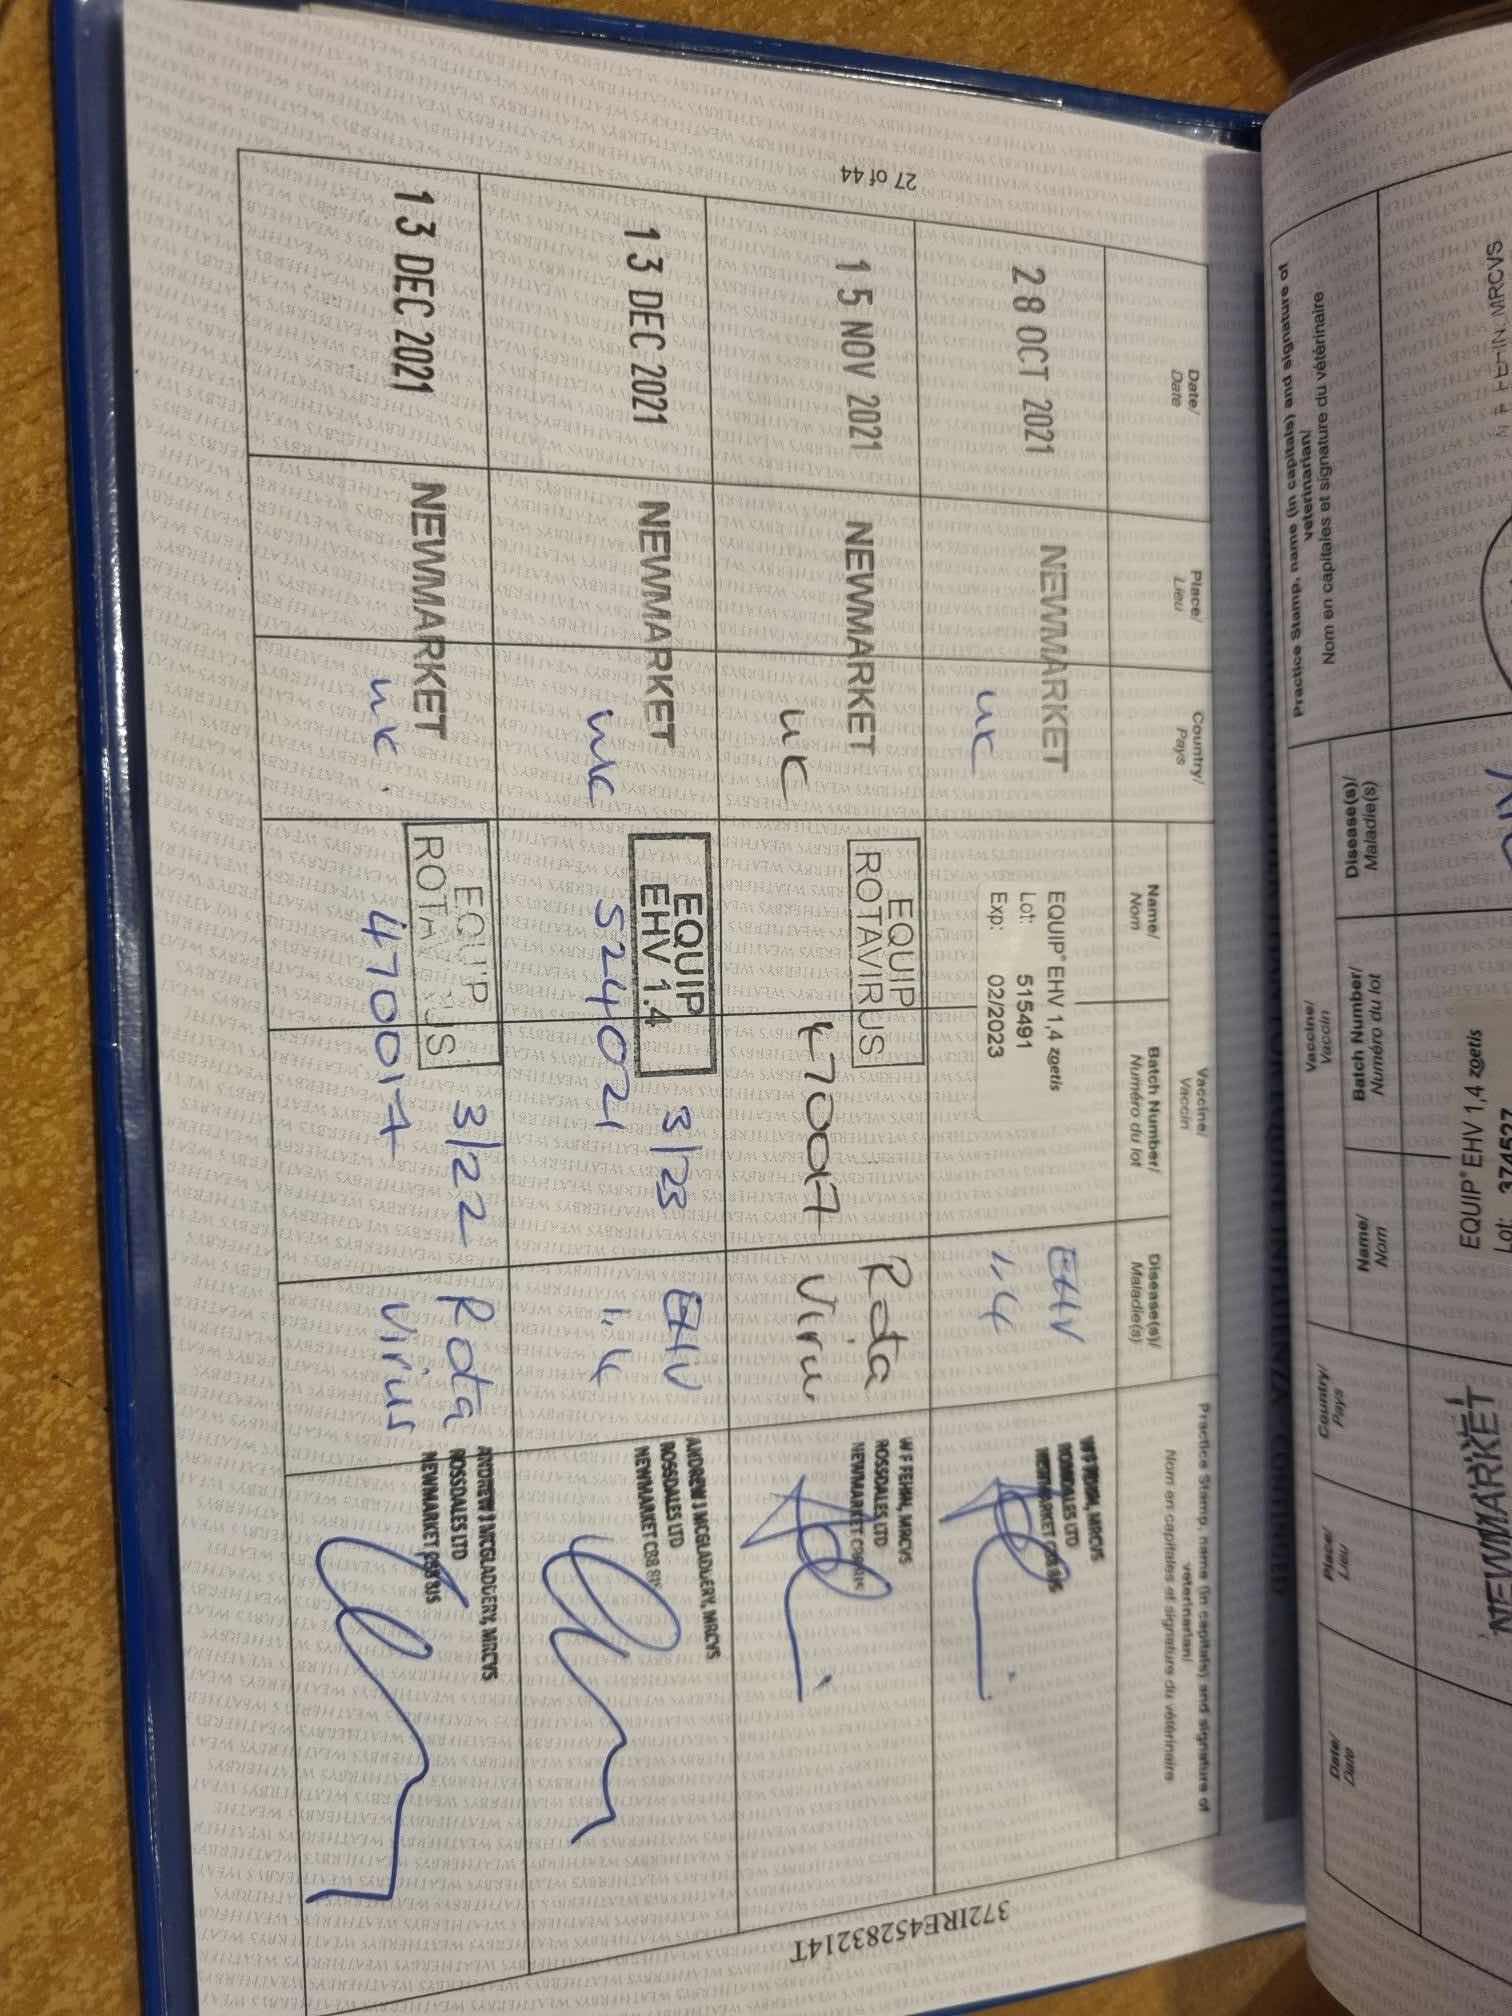 27 of 44
372IRE45283214T
Date/
Date
Place/
Lieu
Country/
Pays
Vaccine/
Vaccin
Name/
Nom
Batch Number/
Numéro du lot
Disease(s)/
Maladie(s)
Practice Stamp, name (in capitals) and signature of
veterinarian/
Nom en capitales et signature du vétérinaire
28 OCT 2021
NEWMARKET
UK
EQUIP® EHV 1,4 zoetis
Lot: 515491
Exp: 02/2023
EHV
1,4
MRCVS
ROSSDALES LTD
NEWMARKET
15 NOV 2021
NEWMARKET
UK
EQUIP
ROTAVIRUS
470017
Rota
Virus
W F FEHIN, MRCVS
ROSSDALES LTD
NEWMARKET
13 DEC 2021
NEWMARKET
UK
EQUIP
EHV 1.4
3/23
524021
EHV
1.4
ANDREW J MCGLADDERY, MRCVS
ROSSDALES LTD
NEWMARKET CB8
13 DEC 2021
NEWMARKET
UK
EQUIP
ROTAVIRUS
3/22
470017
Rota
Virus
ANDREW J MCGLADDERY, MRCVS
ROSSDALES LTD
NEWMARKET
Date/
Date
Place/
Lieu
Country/
Pays
Vaccine/
Vaccin
Name/
Nom
Batch Number/
Numéro du lot
Disease(s)/
Maladie(s)
Practice Stamp, name (in capitals) and signature of
veterinarian/
Nom en capitales et signature du vétérinaire
NEWMARKET
EQUIP® EHV 1,4 zoetis
Lot: 374527
FEHIN, MRCVS
WEATHERBYS